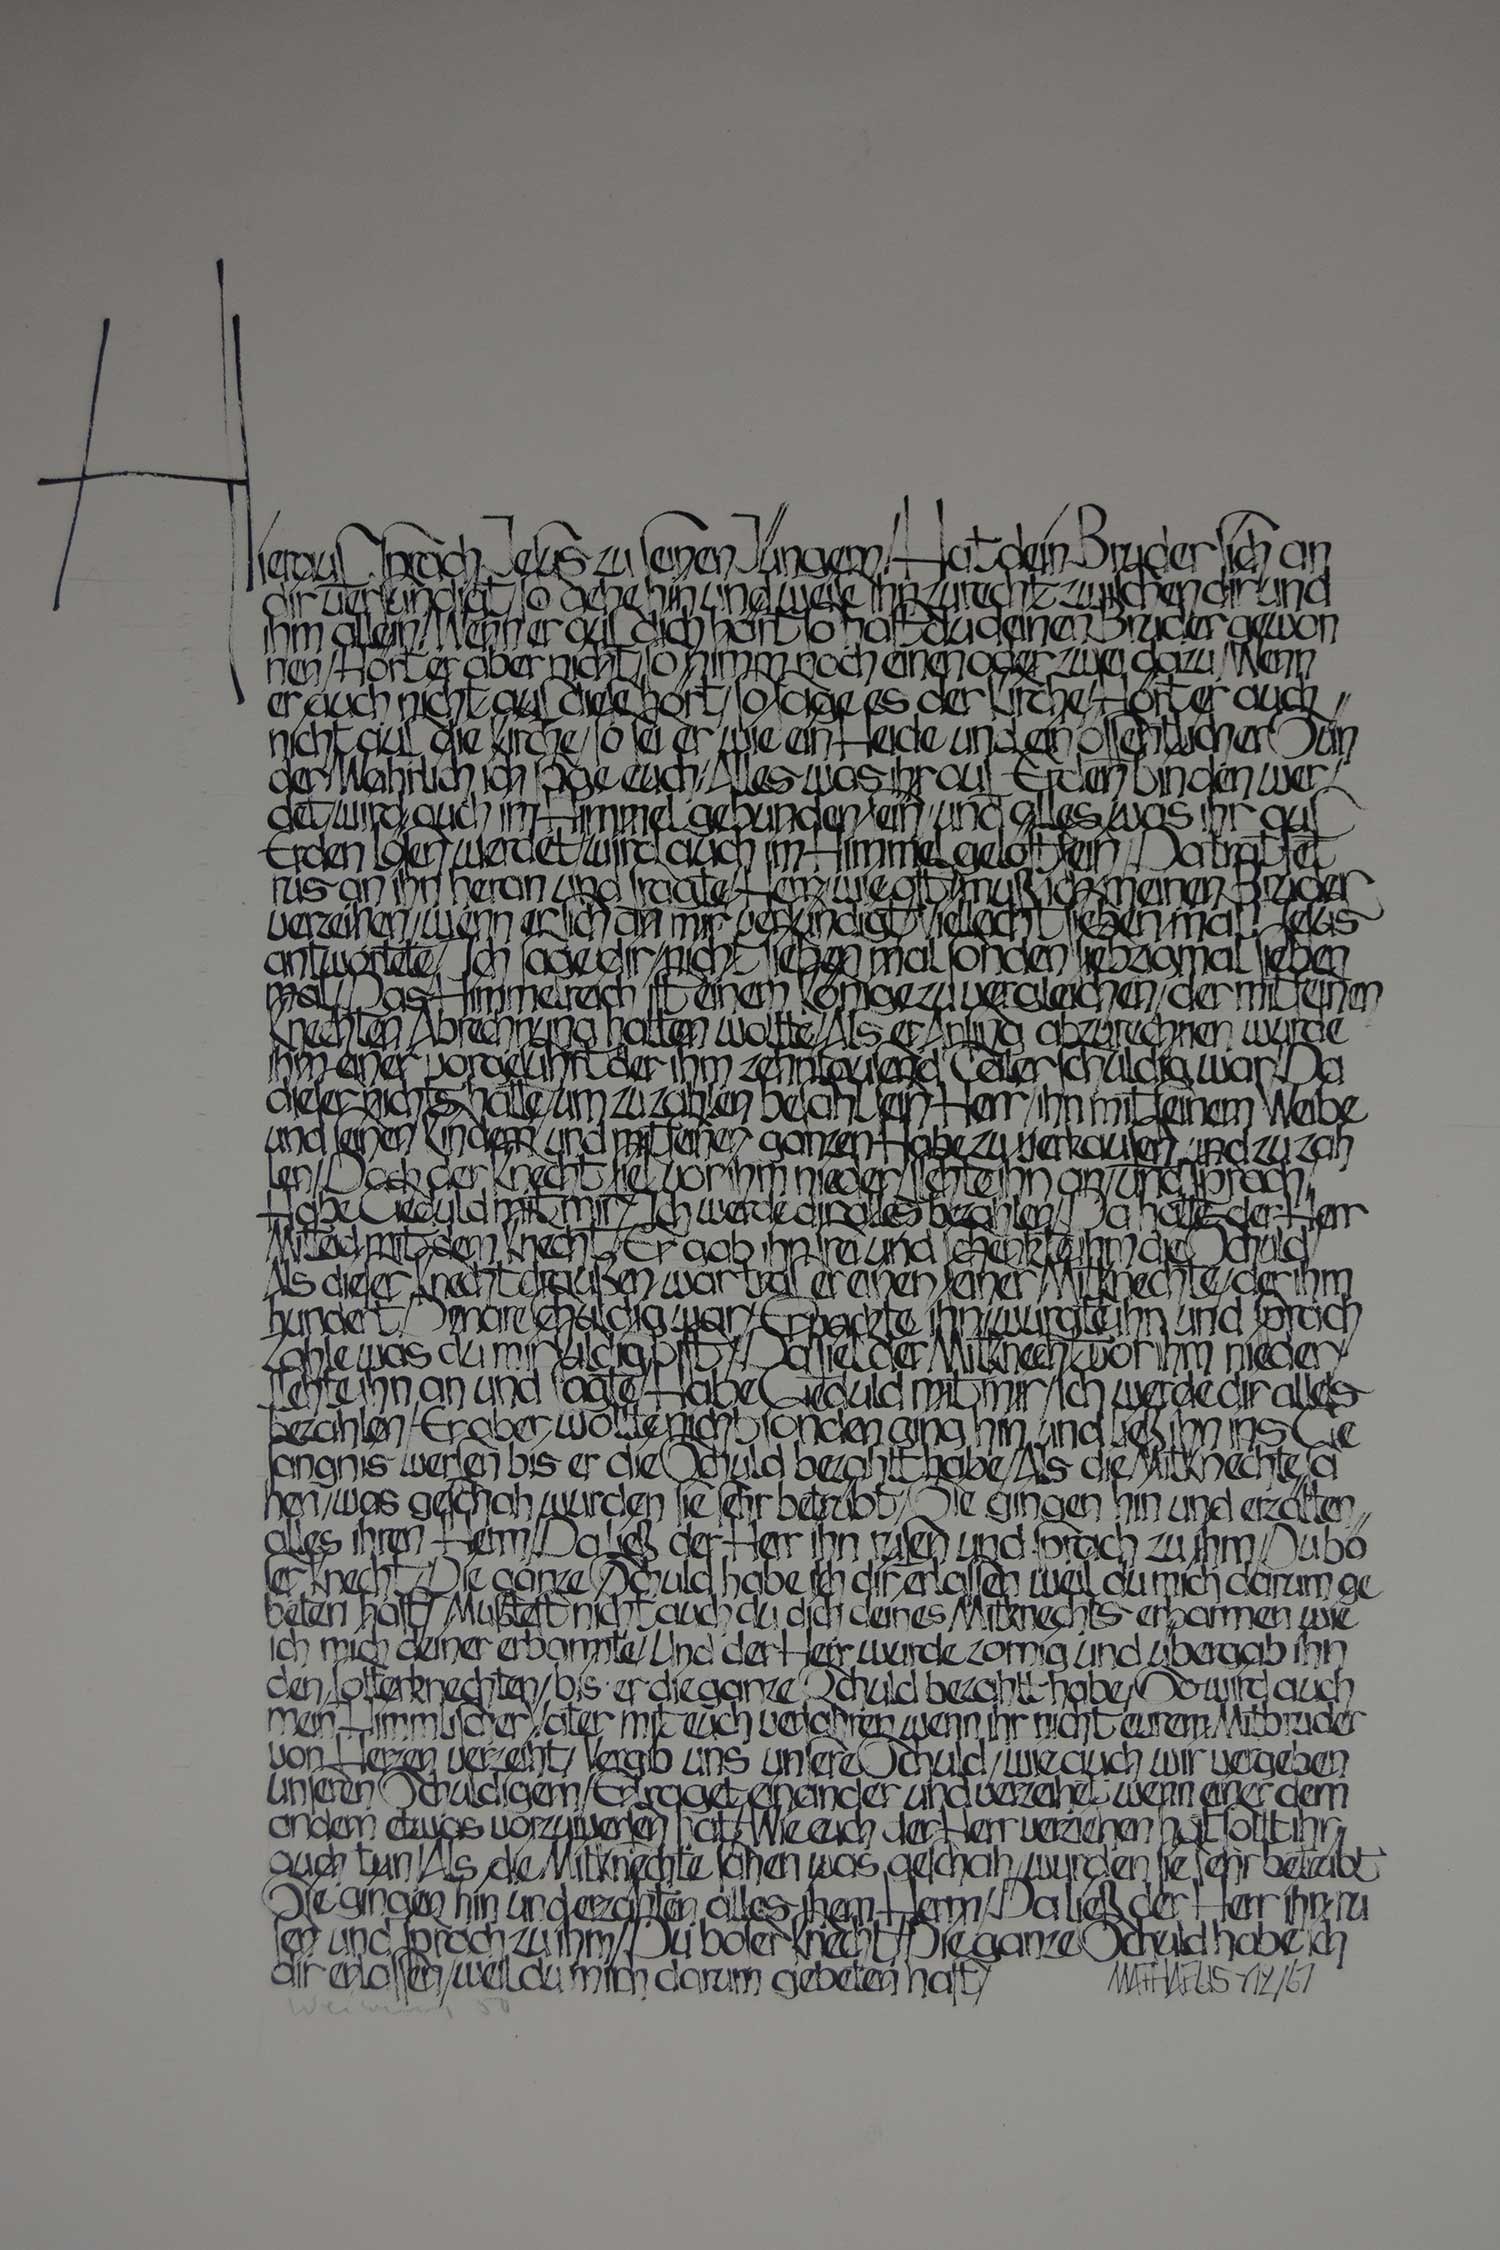 Hierauf sprach Jesus zu seinen Jüngern/Hat dein Bruder sich an
dir versündigt/so gehe hin und weise ihn zurecht zwischen dir und
ihm allein/Wenn er auf dich hört so hast du deinen Bruder gewon
nen/Hört er aber nicht/so nimm noch einen oder zwei dazu/Wenn
er auch nicht auf diese hört/so sage es der Kirche/Hört er auch
nicht auf die Kirche/so sei er wie ein Heide und ein öffentlicher Sün
der/Wahrlich ich sage euch/Alles was ihr auf Erden binden wer/
det/wird auch im Himmel gebunden sein/und alles was ihr auf
Erden lösen werdet/wird auch im Himmel gelöst sein/Da trat Pet
rus an ihn heran und fragte/Herr/wie oft muß ich meinen Bruder
verzeihen/wenn er sich an mir versündigt/Vielleicht sieben mal? Jesus
antwortete/Ich sage dir/nicht sieben mal sonden siebzigmal sieben
mal/Das Himmelreich ist einem Könige zu vergleichen/der mit seinen
Knechten Abrechnung halten wollte/Als er anfing abzurechnen wurde
ihm einer vorgeführt der ihm zehntausend Taler schuldig war/Da
dieser nichts hatte/um zu zahlen befahl sein Herr/ihn mit seinem Weibe
und seinen Kindern und mit seiner ganzen Habe zu verkaufen und zu zah
len/Doch der Knecht fiel vor ihm nieder/flehte ihn an/und sprach/
Habe Geduld mit mir/Ich werde dir alles bezahlen/Da hatte der Herr
Mitleid mit dem Knecht/Er gab ihn frei und schenkte ihm die Schuld/
Als dieser Knecht draußen war traf er einen seiner Mitknechte/der ihm
hundert/Denare schuldig war/Er packte ihn/würgte ihn und sprach
Zahle was du mir schuldig bist/Da fiel der Mitknecht vor ihm nieder/
flehte ihn an und sagte/Habe Geduld mit mir/Ich werde dir alles
bezahlen/Er aber wollte nicht sonden ging hin und ließ ihn ins Ge
fängnis werfen bis er die Schuld bezahlt habe/Als die Mitknechte sa
hen/was geschah wurden sie sehr betrübt/Sie gingen hin und erzälten
alles ihren Herrn/Da ließ der Herr ihn rufen und sprach zu ihm/Du bö
ser Knecht/Die ganze Schuld habe ich dir erlassen weil du mich darum ge
beten hast/Mußtest nicht auch du dich deines Mitknechts erbarmen wie
ich mich deiner erbarmte/Und der Herr wurde zornig und übergab ihn
den Folterknechten/bis er die ganze Schuld bezahlt habe/So wird auch
mein Himmlischer Vater mit euch verfahren wenn ihr nicht eurem Mitbruder
von Herzen verzeiht/Vergib uns unsere Schuld/wie auch wir vergeben
unseren Schuldigern/Ertraget einander und verzeihet wenn einer dem
andern etwas vorzuwerfen hat/Wie euch der Herr verziehen hat sollt ihr
auch tun/Als die Mitknechte sahen was geschah wurden sie sehr betrübt
Sie gingen hin und erzählten alles ihrem Herrn/Da ließ der Herr ihn ru
fen und sprach zu ihm/Du böser Knecht/Die ganze Schuld habe ich
dir erlassen/weil du mich darum gebeten hast/ MATHAEUS